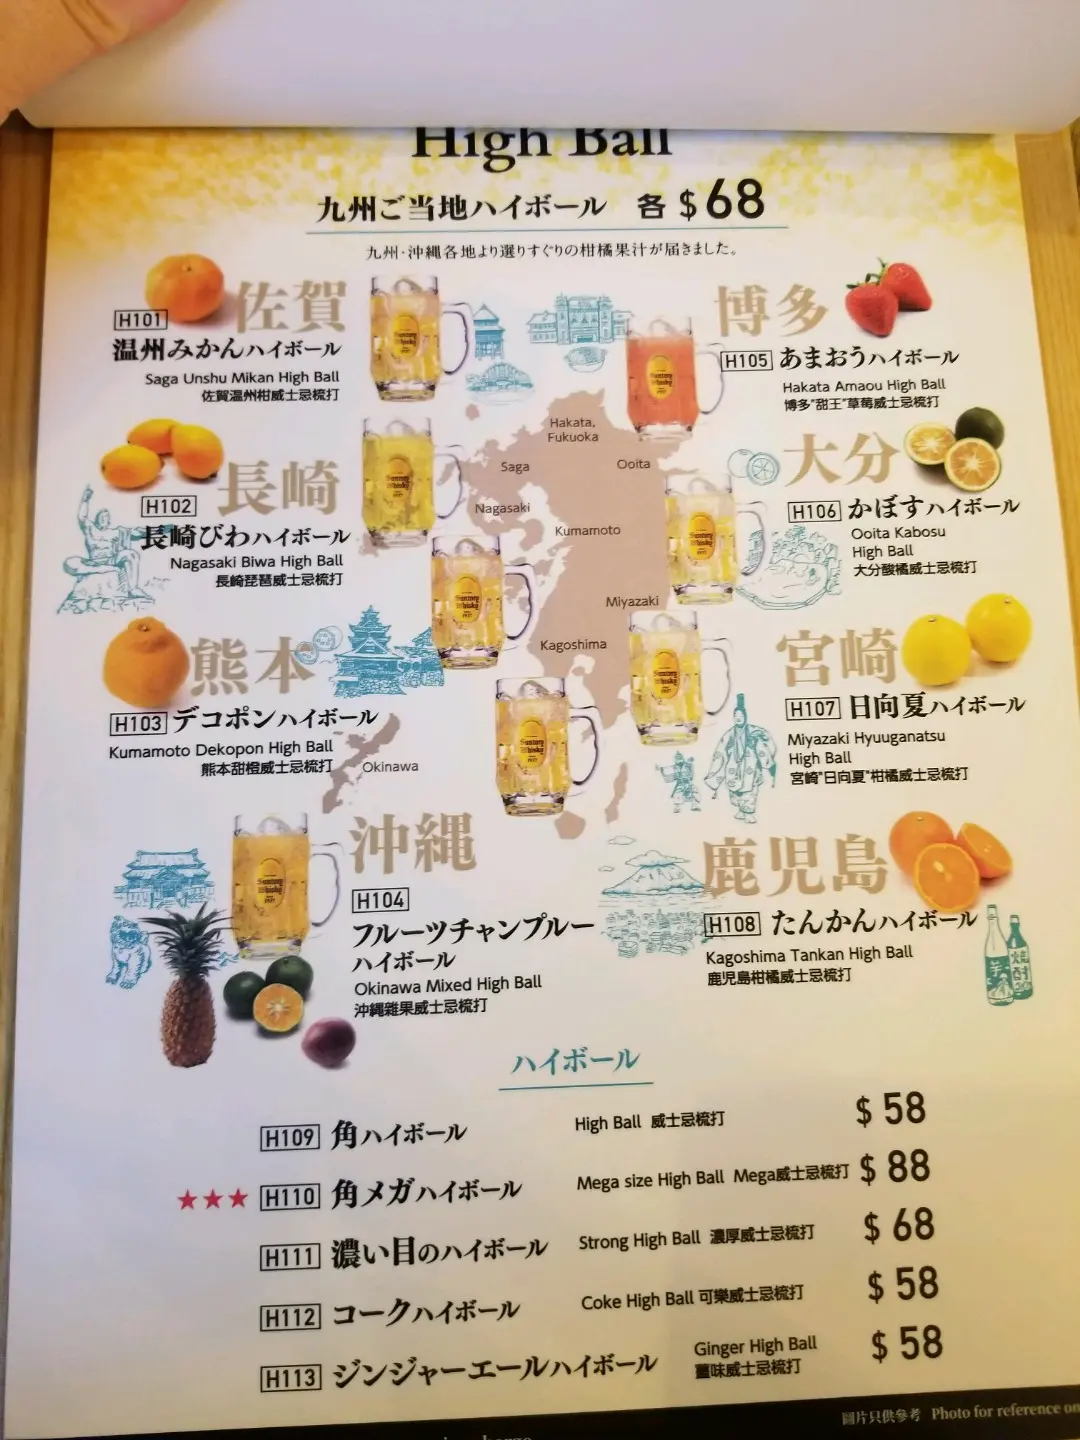 High Ball
九州ご当地ハイボール 各 $68
九州・沖縄各地より選りすぐりの柑橘果汁が届きました。
佐賀
H101
温州みかんハイボール
Saga Unshu Mikan High Ball
佐賀温州柑威士忌梳打
博多
H105 あまおうハイボール
Hakata Amaou High Ball
博多"甜王"草莓威士忌梳打
長崎
H102
長崎びわハイボール
Nagasaki Biwa High Ball
長崎琵琶威士忌梳打
大分
H106 かぼすハイボール
Ooita Kabosu
High Ball
大分酸橘威士忌梳打
Hakata,
Fukuoka
Saga
Ooita
Nagasaki
Kumamoto
Miyazaki
Kagoshima
Okinawa
熊本
H103 デコポンハイボール
Kumamoto Dekopon High Ball
熊本甜橙威士忌梳打
宮崎
H107 日向夏ハイボール
Miyazaki Hyuuganatsu
High Ball
宮崎"日向夏"柑橘威士忌梳打
沖縄
H104
フルーツチャンプルー
ハイボール
Okinawa Mixed High Ball
沖縄雜果威士忌梳打
鹿児島
H108 たんかんハイボール
Kagoshima Tankan High Ball
鹿児島柑橘威士忌梳打
ハイボール
H109 角ハイボール High Ball 威士忌梳打 $ 58
★★★ H110 角メガハイボール Mega size High Ball Mega威士忌梳打 $ 88
H111 濃い目のハイボール Strong High Ball 濃厚威士忌梳打 $ 68
H112 コークハイボール Coke High Ball 可樂威士忌梳打 $ 58
H113 ジンジャーエールハイボール Ginger High Ball $ 58
薑味威士忌梳打
圖片只供參考 Photo for reference on